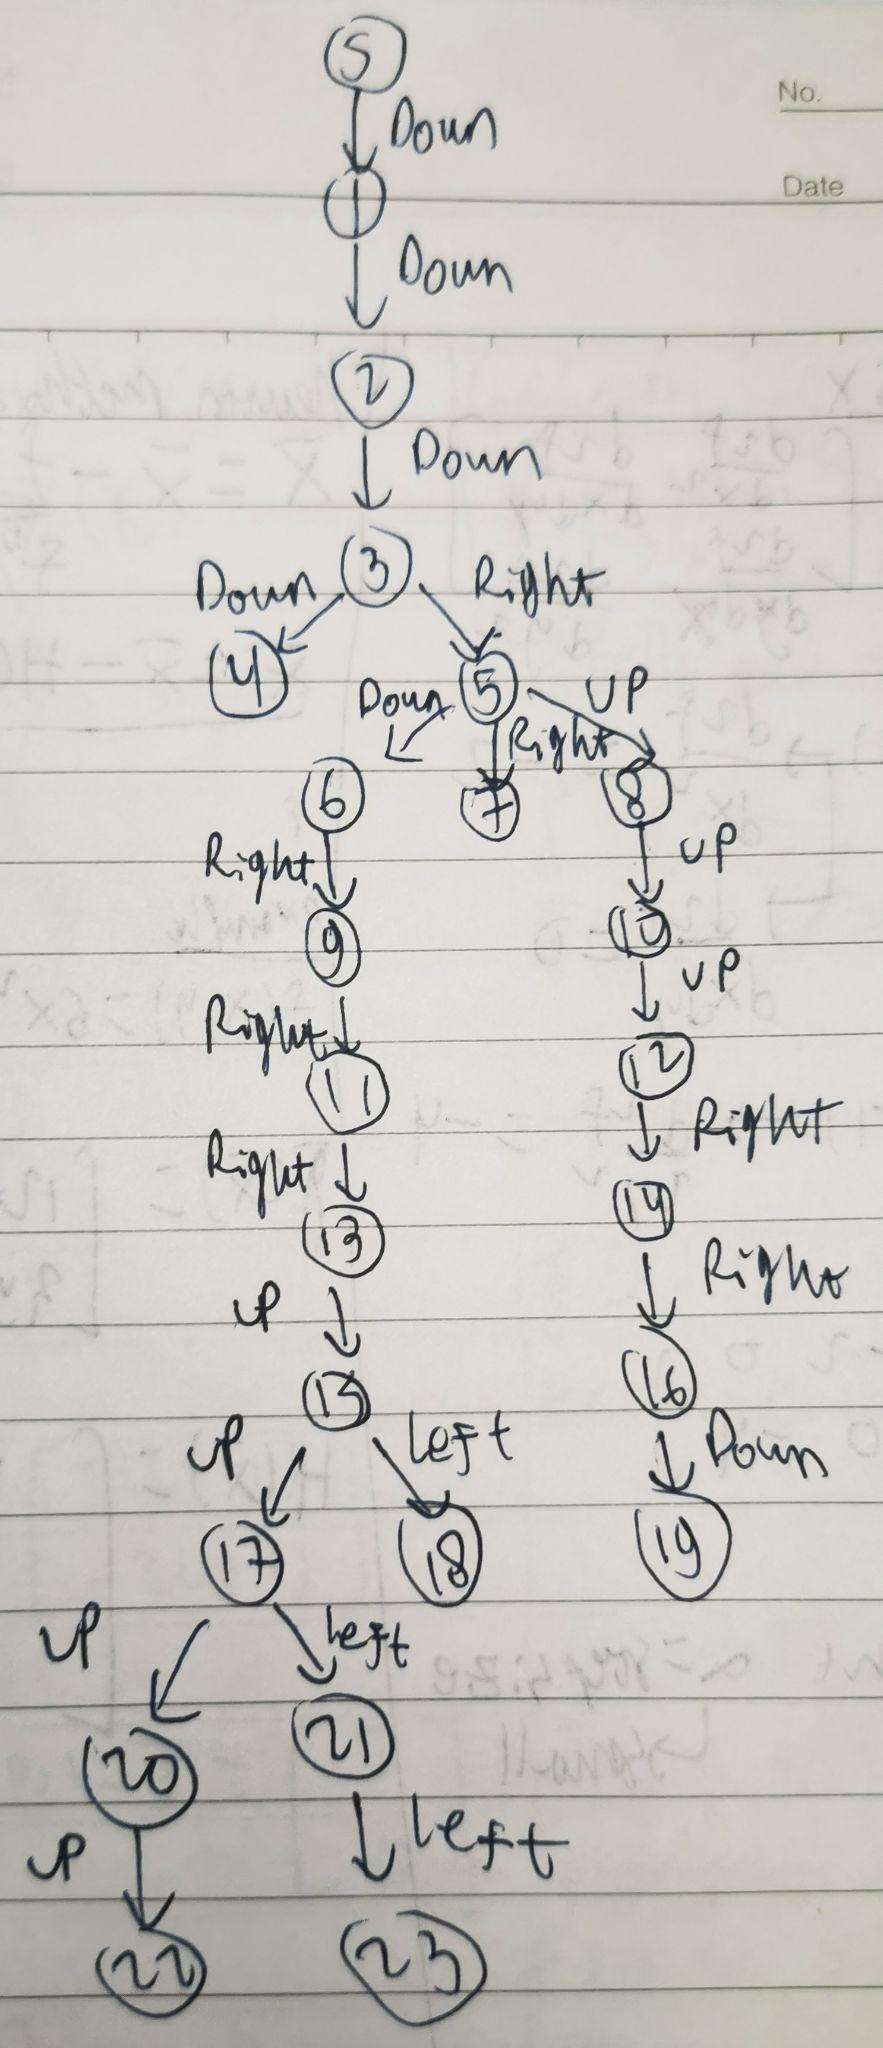 S
No.
Down
Date
1
Down
2
Down
3
Down Right
4 5
Down Right UP
6 7 8
Right UP
9 10
Right UP
11 12
Right Right
13 14
UP Right
15 16
UP Left Down
17 18 19
UP Left
20 21
UP Left
22 23